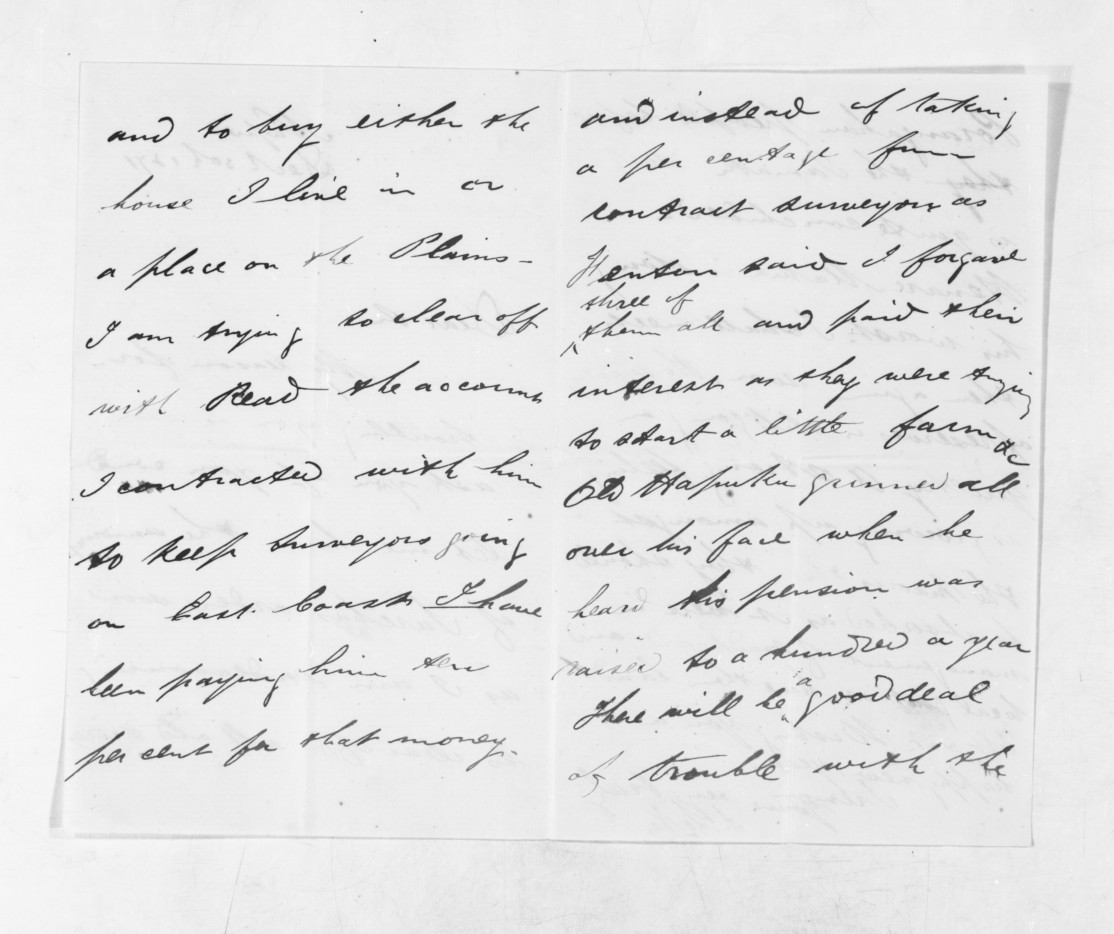 and to buy either the
house I live in or
a place on the Plains -
I am trying to clear off
with Read the accounts
I contracted with him
to keep surveyors going
on East Coast I have
been paying him ten
per cent for that money.
and instead of taking
a per centage from
contract surveyors as
Heaton said I forgave
three of
them all and paid their
interest as they were trying
to start a little farm &c
Old Hapuku grinned all
over his face when he
heard his pension was
raised to a hundred a year
There will be a good deal
of trouble with the